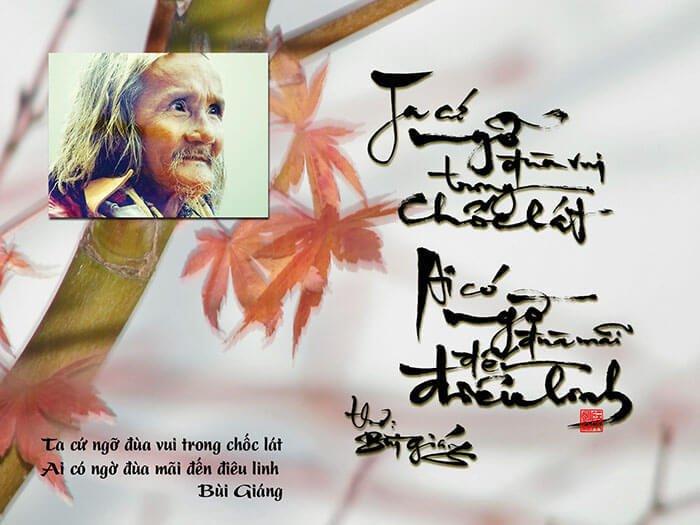 Ta cứ
ngỡ đùa vui
trong
chốc lát
Ai có
ngờ đùa mãi
đến
điêu linh
thơ:
Bùi Giáng
Ta cứ ngỡ đùa vui trong chốc lát
Ai có ngờ đùa mãi đến điêu linh
Bùi Giáng